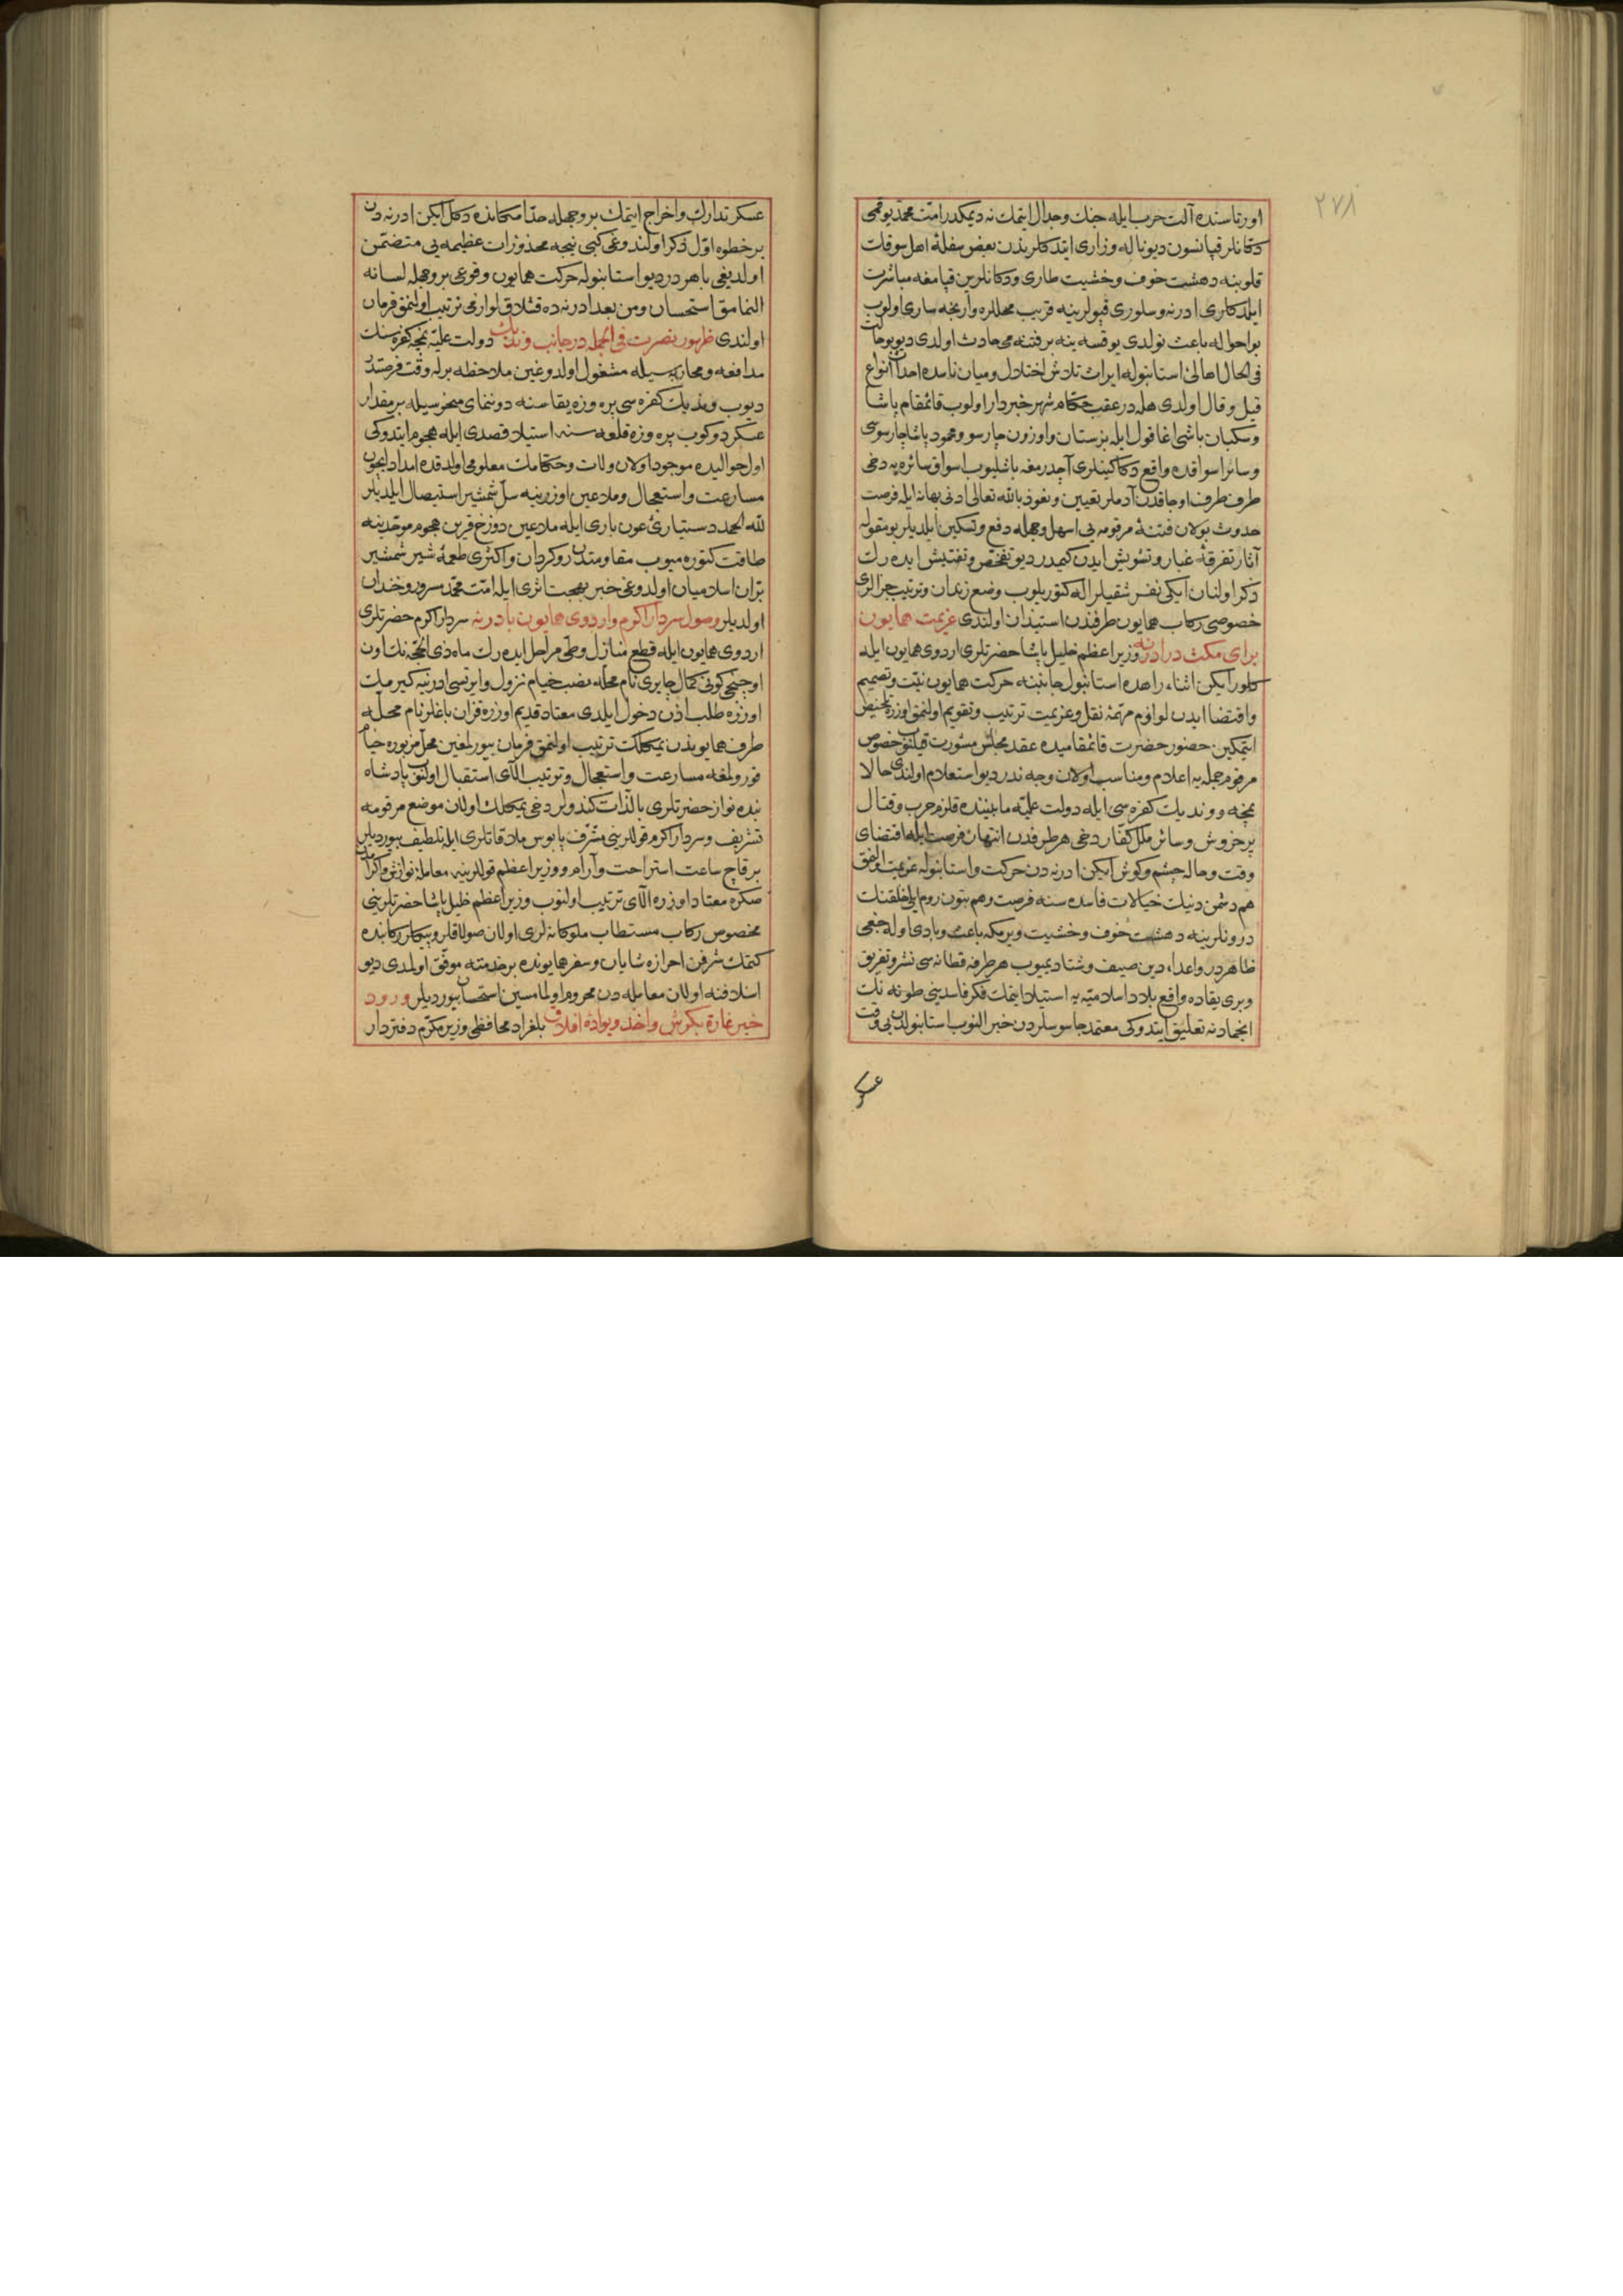 ٢٧٨
اورتاسنده آلت حرب ایله جنك وجدال ایتمك نه دیمكدر امت محمد یوقمی
دكانلر قپانسون دیو ناله وزاری ایتدكلرندن بعض سفلهٔ اهل سوقك
قلوبنه دهشت خوف وخشیت طاری ودكانلرین قپامغه مباشرت
ایلدكلری ادرنه وسلوری قپولرینه قریب محللره وارنجه ساری اولوب
بو احواله باعث نولدی یوقسه ینه بر فتنه می حادث اولدی دیو
فی الحال اهالئ استانبوله ایراث تلاش اختلال ومیان ناسده احداث انواع
قیل وقال اولدی هله در عقب حكام شهر خبردار اولوب قائمقام پاشا
وسكبان باشی اغا قول ایله بزستان واوزون چارسو ومحمود پاشا چارسوسی
وسائر اسواقده واقع دكاكینلری آچدرمغه باشلیوب اسواق سائره یه دخی
طرف طرف اوجاقدن آدملر تعیین ونعوذ بالله تعالی ادنی بهانه ایله فرصت
حدوث بولان فتنهٔ مرقومه یی اسهل وجهله دفع وتسكین ایلدیلر بو مقوله
آثار تفرقهٔ غبار وتشویش ایدن كیمدر دیو تفحص وتفتیش ایده رك
ذكر اولنان ایكی نفر شقیلر اله كتوریلوب وضع زندان وترتیب جزالری
خصوصی ركاب همایون طرفندن استیذان اولندی عزیمت همایون
برای مكث در ادرنه وزیر اعظم خلیل پاشا حضرتلری اردوی همایون ایله
كلور ایكن اثناء راهده استانبول جانبنه حركت همایون نیت وتصمیم
واقتضا ایدن لوازم مهمهٔ نقل وعزیمت ترتیب وتقویم اولنمق اوزره تلخیص
ایتمكین حضور حضرت قائمقامیده عقد مجلس مشورت قیلنوب خصوص
مرقوم جمله یه اعلام ومناسب اولان وجه ندر دیو استعلام اولندی حالا
نمچه ووندیك كفره سی ایله دولت علیه مابیننده قلزم حرب وقتال
پرخروش وسائر ملل كفار دخی هر طرفدن انتهاز فرصت ایله اقتضای
وقت وحاله چشم وكوش ایكن ادرنه دن حركت واستانبوله عزیمت اولنمق
هم دشمن دینك خیالات فاسده سنه فرصت وهم بتون روم ایلی خلقنك
درونلرینه دهشت خوف وخشیت ویرمكه باعث وبادی اوله جغی
ظاهردر واعداء دین صیف وشتا دیمیوب هر طرفه قطانه سی نشر وتفریق
وبری یقاده واقع بلاد اسلامیه یه استیلا ایتمك فكر فاسدینی طونه نك
انجمادنه تعلیق ایتدوكی معتمد جاسوسلردن خبر النوب استانبولدن بی وقت
عسكر
عسكر تدارك واخراج ایتمك بر وجهله حد امكانده دكل ایكن ادرنه دن
بر خطوه اول ذكر اولندوغی كبی نیجه محذورات عظیمه یی متضمن
اولدیغی باهردر دیو استانبوله حركت همایون وقوعی بر وجهله لسانه
النمامق استحسان ومن بعد ادرنه ده قشلاق لوازمی ترتیب اولنمق فرمان
اولندی ظهور نصرت فی الجمله در جانب وندیك دولت علیه نمچه كفره سنك
مدافعه ومحاربه سیله مشغول اولدوغین ملاحظه برله وقت فرصتدر
دیوب وندیك كفره سی پره وزه یقاسنه دوننمای منحوسیله بر مقدار
عسكر دوكوب پره وزه قلعه سنه استیلا قصدی ایله هجوم ایتدوكی
اول حوالیده موجود اولان ولات وحكامك معلومی اولدقده امداد ایچون
مسارعت واستعجال وملاعین اوزرینه سل شمشیر استیصال ایلدیلر
لله الحمد دستیارئ عون باری ایله ملاعین دوزخ قرین هجوم موحدینه
طاقت كتوره میوب مقاومتدن روكردان واكثری طعمهٔ شیر شمشیر
بران اسلامیان اولدوغی خبر بهجت اثری ایله امت محمد مسرور وخندان
اولدیلر وصول سردار اكرم واردوی همایون بادرنه سردار اكرم حضرتلری
اردوی همایون ایله قطع منازل وطی مراحل ایده رك ماه ذی الحجه نك اون
اوچنجی كونی كمال چایری نام محله نصب خیام نزول وایرتسی ادرنیه كیرمك
اوزره طلب اذن دخول ایلدی معتاد قدیم اوزره قزان باغلر نام محله
طرف همایوندن یمكلك ترتیب اولنمق فرمان بیورلمغین محل مزبوره خیام
قورولمغه مسارعت واستعجال وترتیب الای استقبال اولنوب پادشاه
بنده نواز حضرتلری بالذات كندولر دخی یمكلك اولان موضع مرقومه
تشریف وسردار اكرم قوللرینی مشرف پابوس ملاقاتلری ایله تلطیف بیوردیلر
بر قاچ ساعت استراحت وآرام ووزیر اعظم قوللرینه معامله نوازش واكرامدن
صكره معتاد اوزره الای ترتیب اولنوب وزیر اعظم خلیل پاشا حضرتلرینی
مخصوص ركاب مستطاب ملوكانه لری اولان صولاقلر وپیكلر ركابنده
كتمك شرفن احرازه شایان وسفر همایونده بر خدمته موفق اولمدی دیو
اسلافنه اولان معامله دن محروم اولمامسین استحسان بیوردیلر ورود
خبر غارة بكرش واخذ ویوادهٔ افلاق بلغراد محافظی وزیر مكرم دفتردار